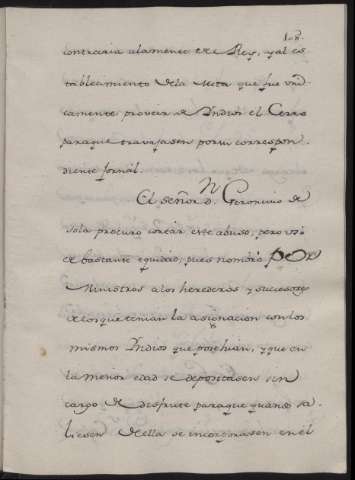 108.
contraria alamente del Rey, yal es
tablecimiento dela Mita que fue uni
camente proveir de Yndios el Cerro
paraque travajasen por su correspon
diente Jornàl.
El señor Dn. Geronimo de
Sola procurò cortar este abuso, pero usò
de bastante equidad, pues nombrò POR
Ministros alos herederos, y succesores
delos que tenian la asignacion con los
mismos Yndios que posehian, y que en
la menor edad se depositasen sin
cargo de disfrute paraque quando sa
liesen de ella se incorporasen en él